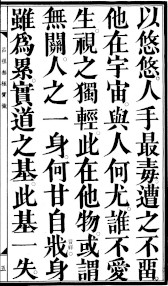 以悠悠人手最毒遭之不畱
他在宇宙與人何尤誰不愛
生視之獨輕此在他物或謂
無關人之一身何甘自戕身
雖爲累實道之基此基一失
五